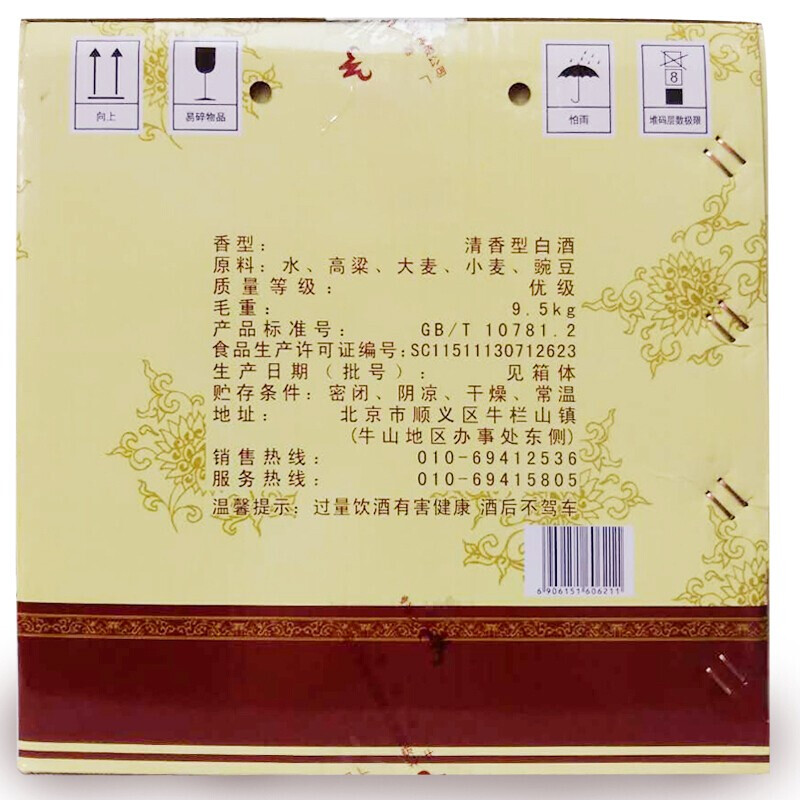 向上
易碎物品
怕雨
8
堆码层数极限
香型： 清香型白酒
原料：水、高粱、大麦、小麦、豌豆
质量等级： 优级
毛重： 9.5kg
产品标准号： GB/T 10781.2
食品生产许可证编号：SC11511130712623
生产日期（批号）： 见箱体
贮存条件：密闭、阴凉、干燥、常温
地址： 北京市顺义区牛栏山镇
(牛山地区办事处东侧)
销售热线： 010-69412536
服务热线： 010-69415805
温馨提示：过量饮酒有害健康 酒后不驾车
6906151606211